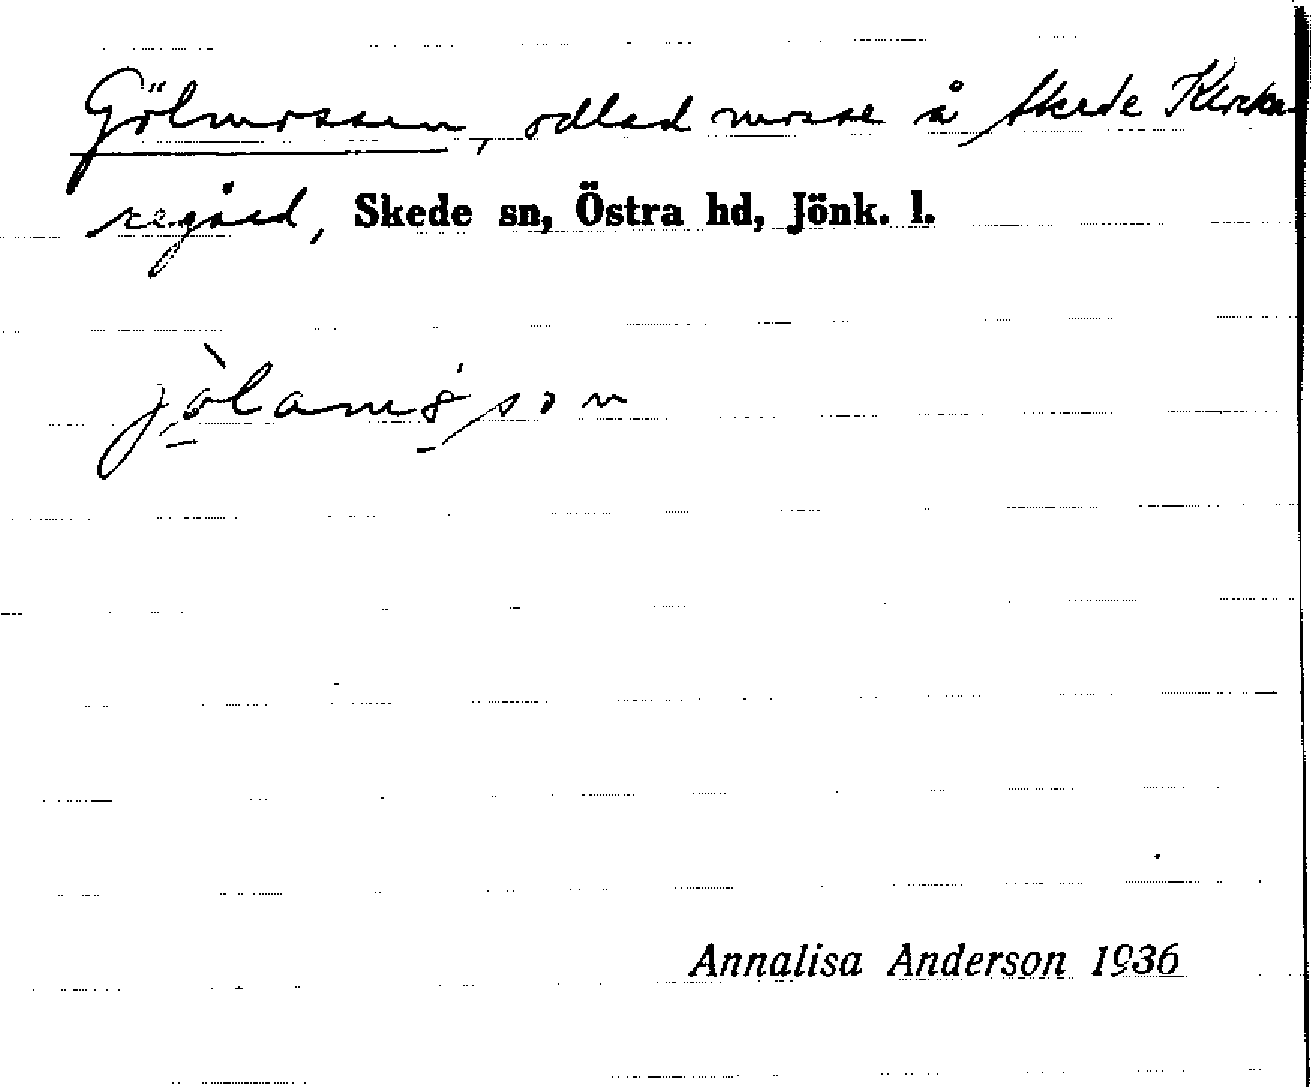 Gölmossen, odlad mosse å Skede Klocka-
regård, Skede sn, Östra hd, Jönk. l.
Annalisa Anderson 1936